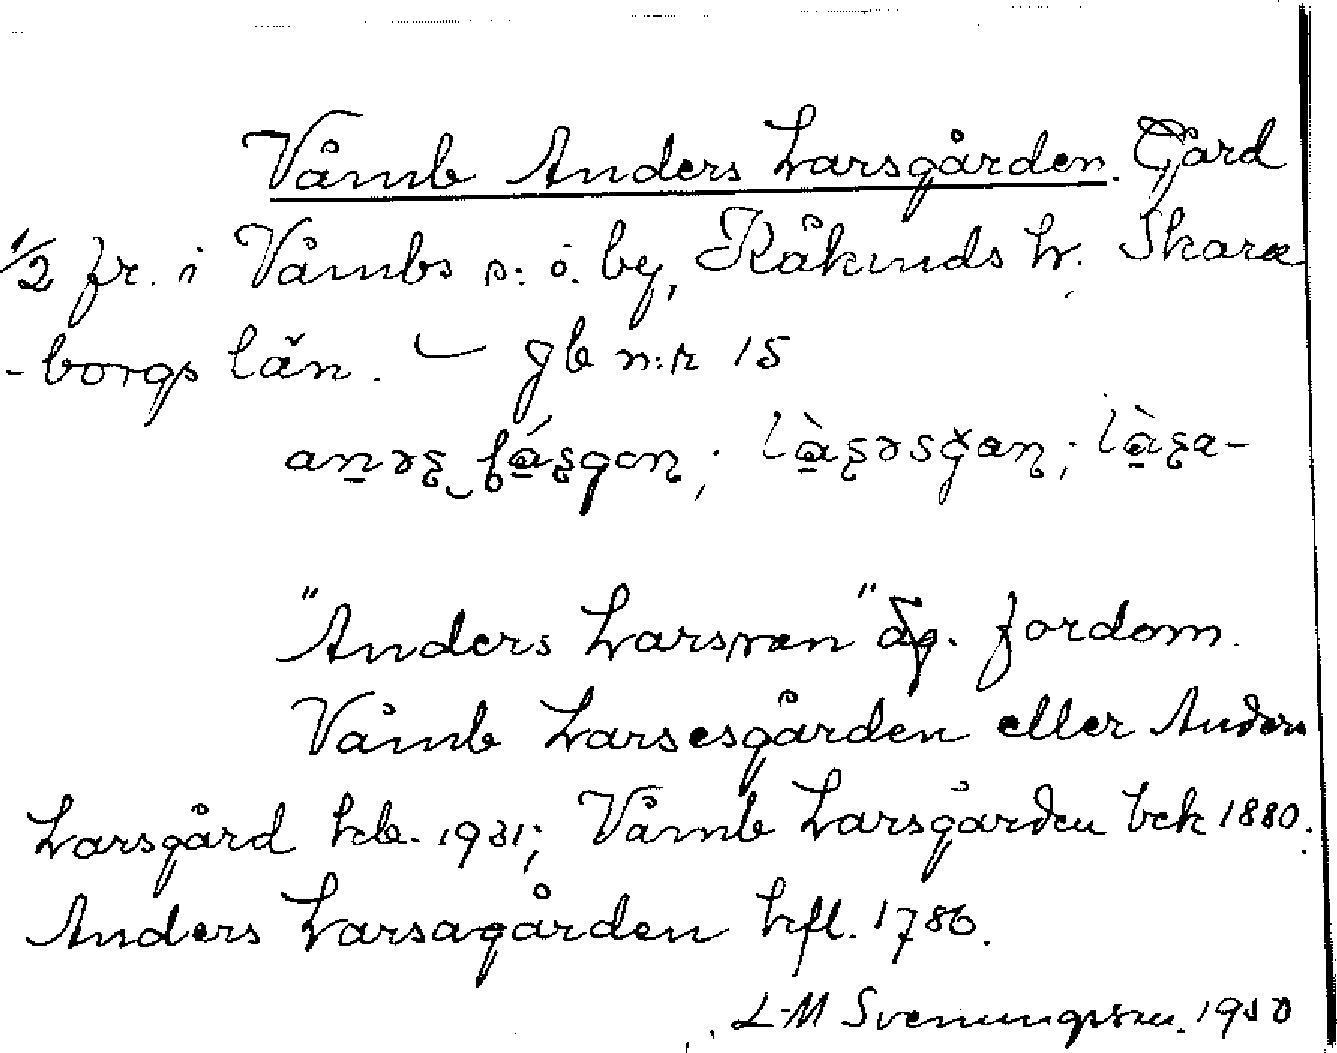 Våmb Anders Larsgården. Gård
1/2 fr. i Våmbs s: o. by, Kåkinds h. Skara
-borgs län. — Jb n:r 15

"Anders Larsmen" äg. fordom.
Våmb Larsesgården eller Anders
Larsgård hb. 1931; Våmb Larsgården bek 1880.
Anders Larsagården hfl. 1786.
L-M Svenungsson.